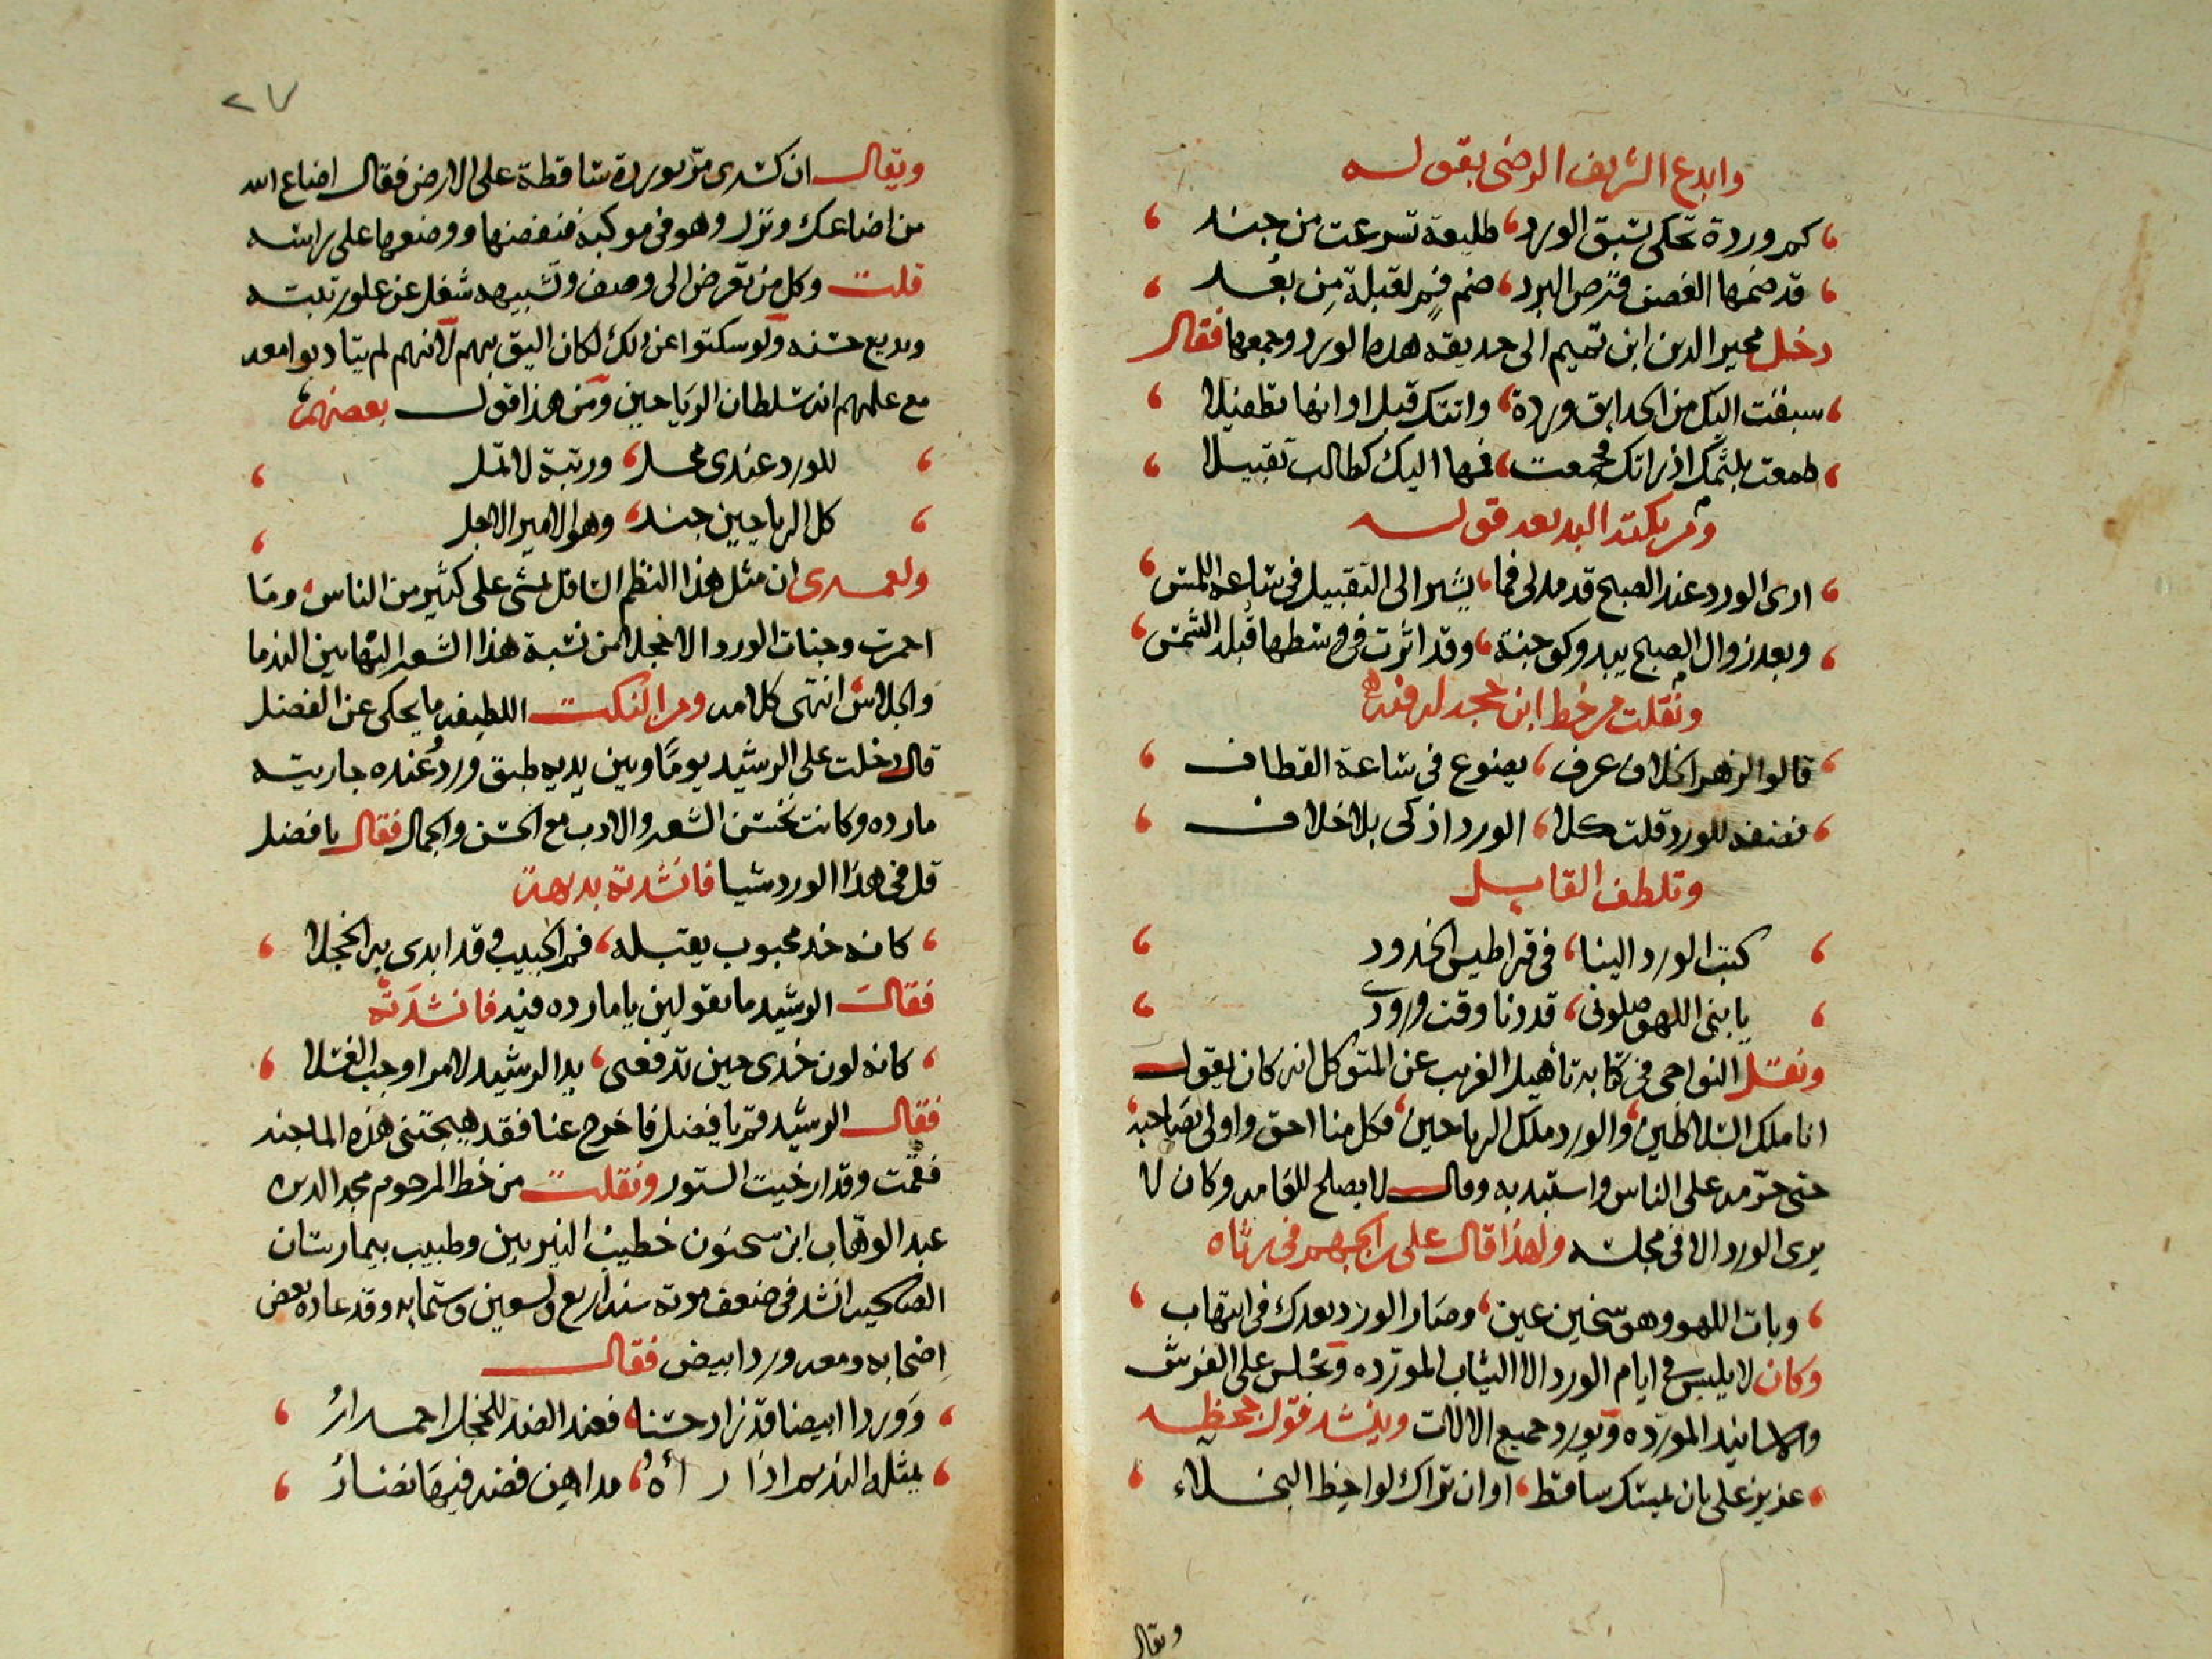 وابدع الشريف الرضى بقوله
كم وردة تحكى بسبق الورد، طليعة تسرعت من جند
قد ضمها الغصن قرص البرد، ضم فم لقبلة من بعد
دخل مجير الدين ابن تميم الى حديقة هذه الورد وجمعها فقال
سبقت اليك من الحدايق وردة، واتتك قبل اوانها تطفيلا
طمعت بلثمك اذ راتك فجمعت، فمها اليك كطالب تقبيلا
ولم يكفه البد بعد قوله
ارى الورد عند الصبح قد مد لى فما، يشير الى التقبيل فى ساعة اللمس
وبعد زوال الصبح يبدو كوجنة، وقد اثرت فى وسطها قبل الشمس
ونقلت من خط ابن حجر له فقه
قالوا الزهر الخلاف عرف، يضوع فى ساعة القطاف
نصفه للورد قلت كلا، الورد اذكى بلا خلاف
وتلطف القايل
كتب الورد الينا، فى قراطيس الخدود
يا بنى اللهو صلونى، قد دنا وقت ورودى
ونقل النواجى فى كتابه تأهيل الغريب عن المتوكل انه كان يقول
انا ملك السلاطين، والورد ملك الرياحين، فكل منا احق واولى بصاحبه
حتى حرمه على الناس واستبد به وقال لا يصلح للعامه وكان لا
يرى الورد الا فى مجلسه ولهذا قال على بن الجهم فى رثاه
وبات اللهو وهو سخين عين، وصار الورد بعدك فى انتهاب
وكان لا يلبس فى ايام الورد الا الثياب المورده وتجلس على الفرش
والاسانيد المورده ويورد جميع الالات وينشد قول جحظه
عزيز على بان يمسك ساقط، او ان تراك لواحظ البخلاء
ويقال
٢٧
ويقال ان كسرى مر بوردة ساقطة على الارض فقال اضاع الله
من اضاعك ونزل وهو فى موكبه فنفضها ووضعها على راسه
قلت وكل من تعرض الى وصف وتشبيهه شغل عن علو رتبته
وبديع حسنه ولو سكتوا عن ذلك لكان اليق بهم لانهم لم يتادبوا معه
مع علمهم انه سلطان الرياحين ومن هذا قول بعضهم
للورد عندى محل، ورتبة لا تمل
كل الرياحين جند، وهو الامير الاجل
ولعمرى ان مثل هذا النظم السافل لمشى على كثير من الناس، وما
احمرت وجنات الورد الا خجلا من نسبة هذا الشعر اليها بين الندما
والجلاس انتهى كلامه ومن النكت اللطيفه ما يحكى عن الفضل
قال دخلت على الرشيد يوما وبين يديه طبق ورد وعنده جاريته
مارده وكانت تحسن الشعر والادب مع الحسن والجمال فقال يا فضل
قل فى هذا الورد شيا فانشدته بديهة
كانه خد محبوب يقبله، فم الحبيب وقد ابدى به الخجلا
فقال الرشيد ما تقولين يا مارده فيه فانشدته
كانه لون خدى حين تدفعى، يد الرشيد لامر اوجب الغسلا
فقال الرشيد قم يا فضل فاخرج عنا فقد هيجتنى هذه الماجنه
فقمت وقد ارخيت الستور ونقلت من خط المرحوم مجد الدين
عبد الوهاب ابن سحنون خطيب النيربين وطبيب بيمارستان
الصالحيه انشد فى ضعف موته سنة اربع وتسعين وستمايه وقد عاده بعض
اصحابه ومعه ورد ابيض فقال
ووردا ابيضا قد زاد حسنا، فعند الضد للخجل احمرار
يمثله النديم اذا راه، مداهن فضه فيها نضار